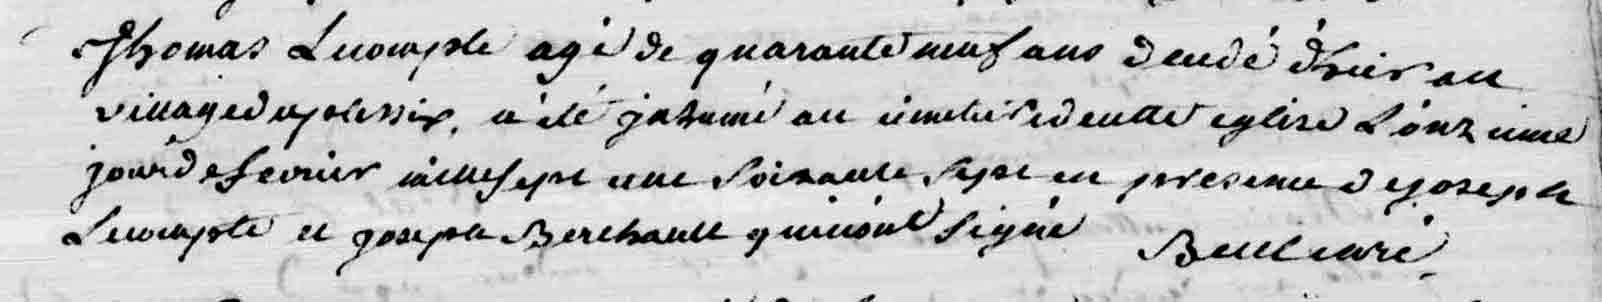 Thomas Lecompte agé de quarante neuf ans decedé d'hier au
village du plessix, a été inhumé au cimetiere de cette eglise L'onzieme
jour de fevrier mille sept cent soixante sept en presence de joseph
Lecompte et joseph Berthault qui n'ont signé